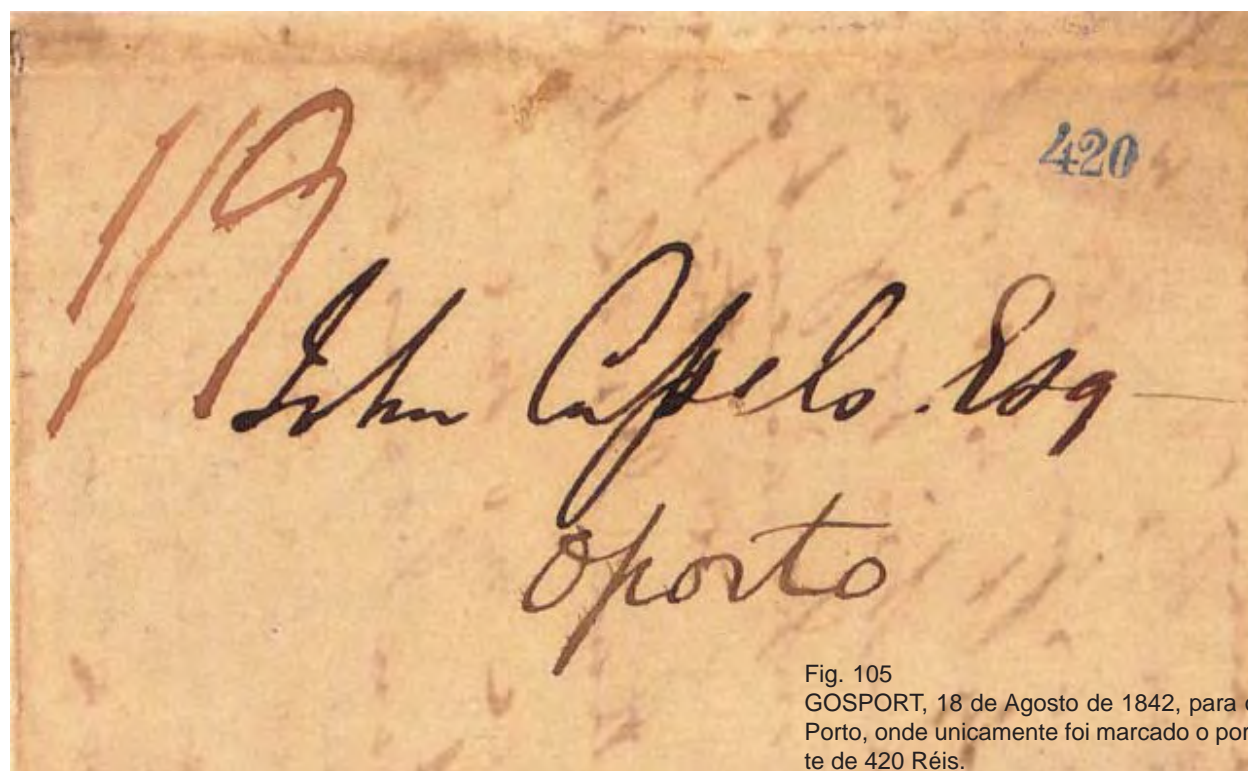 1/9
420
John Esq
Oporto
Fig. 105
GOSPORT, 18 de Agosto de 1842, para o
Porto, onde unicamente foi marcado o por
te de 420 Réis.